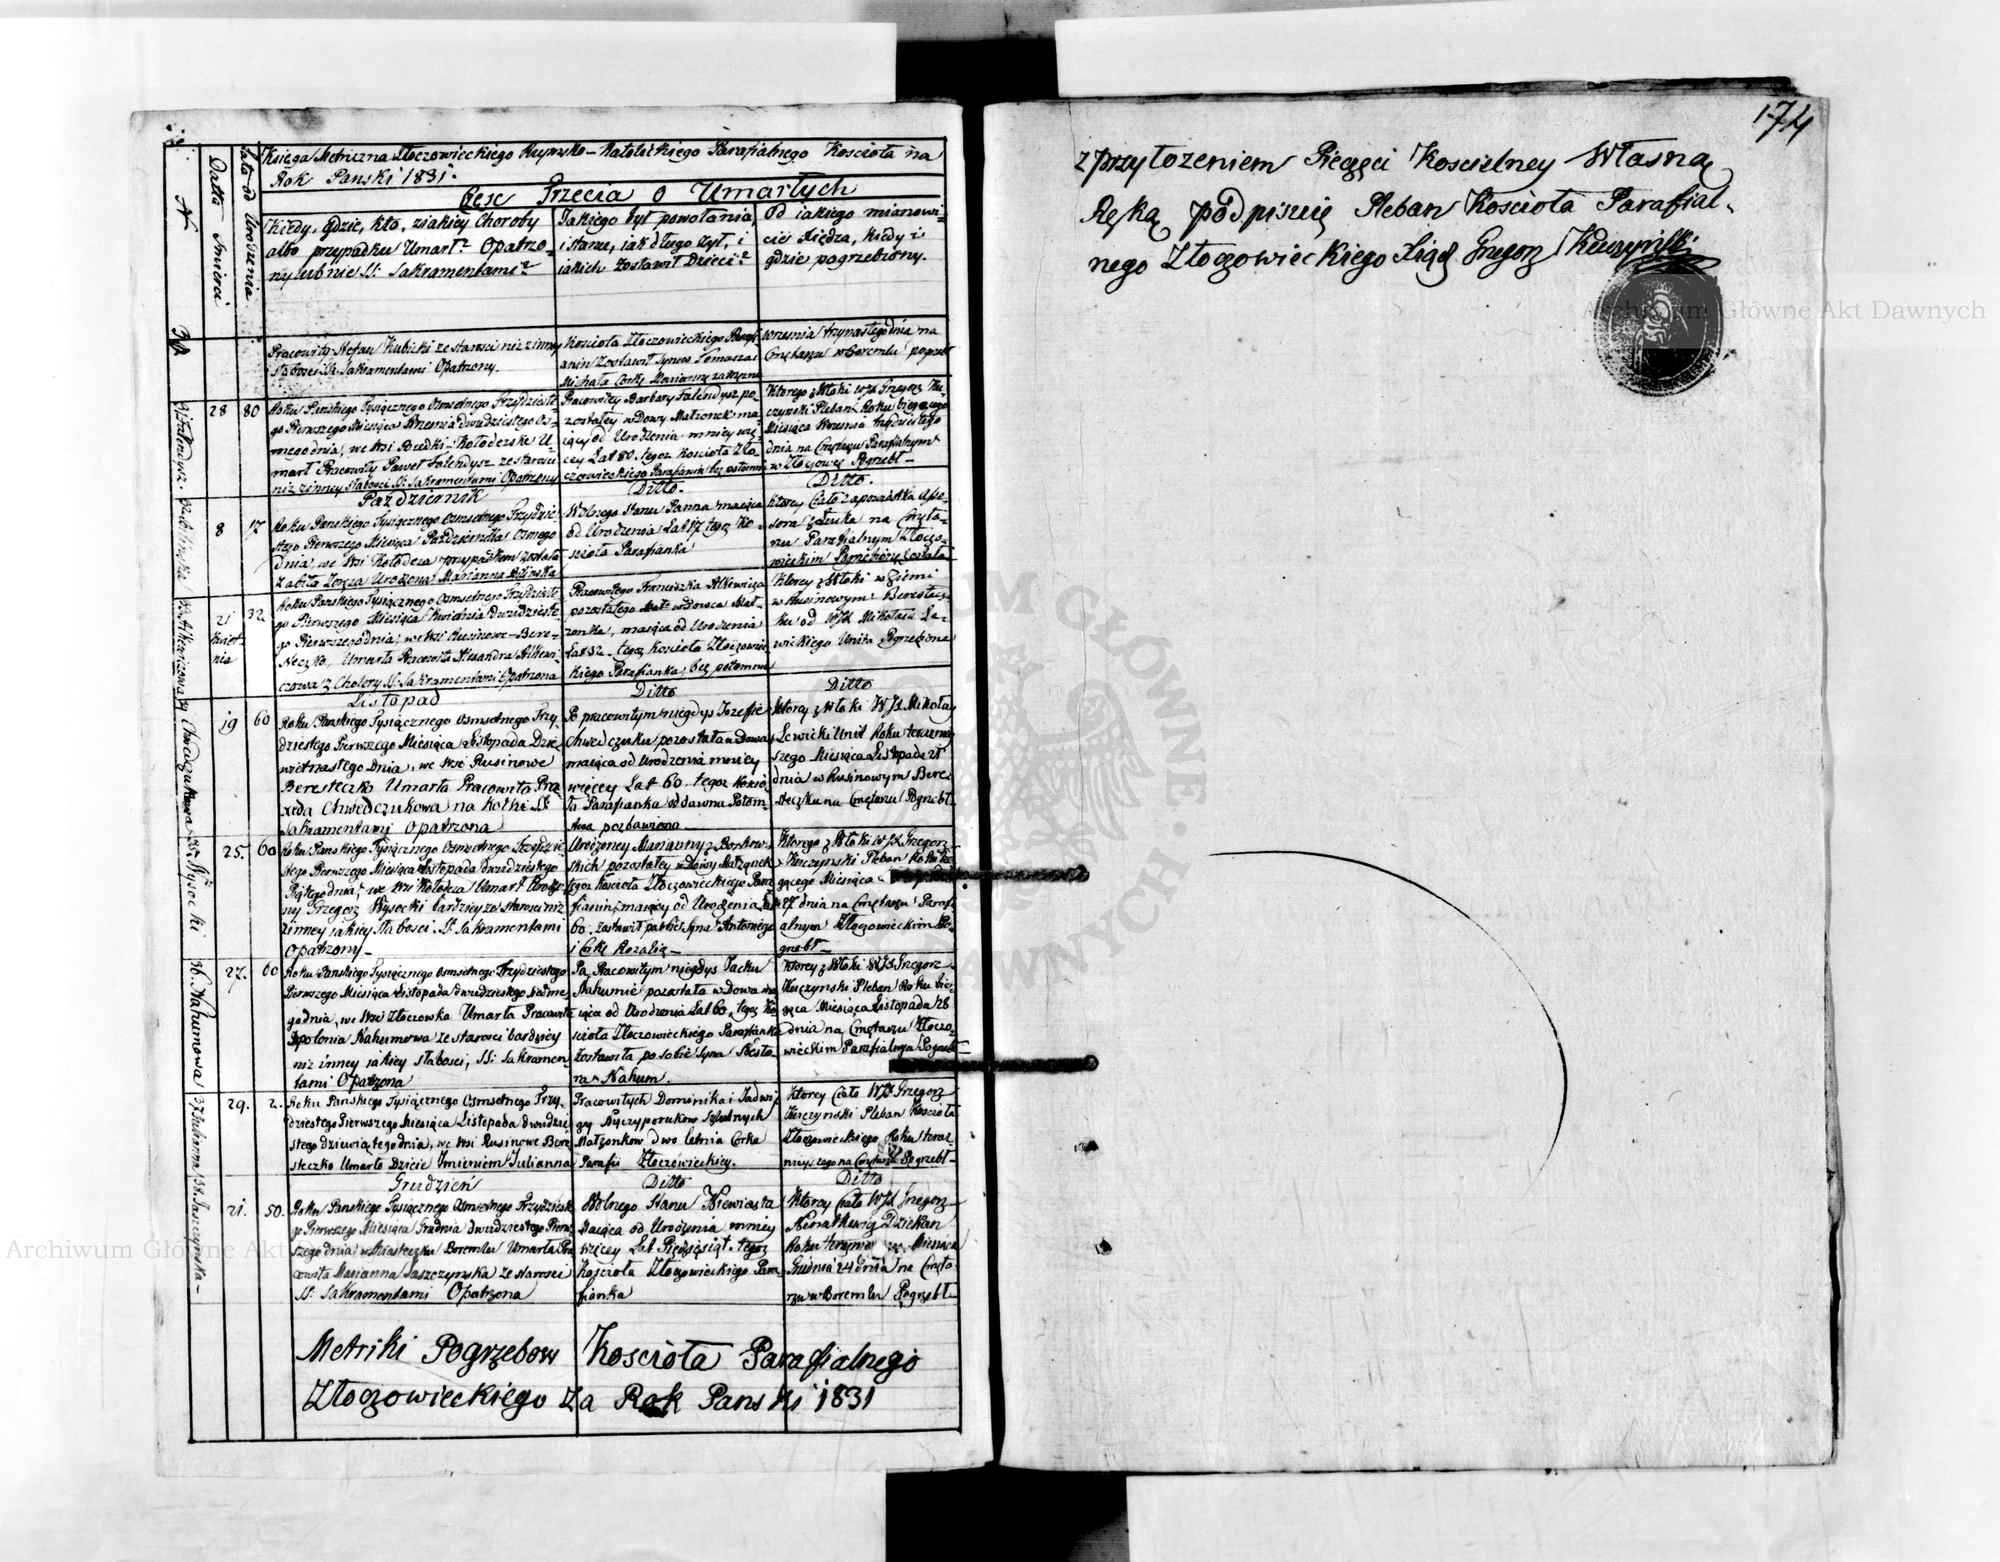 174
Księga Metriczna Złoczowieckiego Rzymsko-Katolickiego Parafialnego Kościoła na
Rok Panski 1831.
Częsc Trzecia o Umarłych
N
Datta Smierci
Lata od Urodzenia
Kiedy, gdzie, kto, z iakiey Choroby
albo przypadku Umarł? Opatrzo-
ny lub nie SS: Sakramentami?
Jakiego był powołania,
i stanu, iak długo żył, i
iakich zostawił Dzieci?
Od iakiego mianowi-
cie Xiędza, kiedy i
gdzie pogrzebiony.
Pracowity Stefan Kubicki ze starosci niz inney
słabosci SS. Sakramentami Opatrzony.
Kościoła Złoczowieckiego Paraf-
ianin Zostawił Synow Tomasza i
Michała Corkę Mariannę
Wrzesnia trzynastego dnia na
Cmętarzu w Boremlu pogrzebł
31 Falendysz.
28
80
Roku Panskiego Tysiącznego Osmsetnego Trzydzieste-
go Pierwszego Miesiąca Wrzesnia dwudziestego Os-
mego dnia, we Wsi Kołodezke U-
marł Pracowity Paweł Falendysz ze starosci
niz inney słabosci SS. Sakramentami Opatrzony
Pracowitey Barbary Falendysz po-
zostałey wDowy Małzonek ma-
iący od Urodzenia mniey wię-
cey Lat 80. tegoz Kościoła Zło-
czowieckiego Parafianin bez potomny
Ktorego z Włoki WJX Grzegorz Ku-
czynski Pleban Roku biezącego
Miesiąca Wrzesnia trzydziestego
dnia na Cmętarzu Parafialnym
w Złoczowce Pogrzebł
Październik
Ditto.
Ditto.
8
17
Roku Panskiego Tysiącznego Osmsetnego Trzydzie-
stego Pierwszego Miesiąca Października Osmego
dnia, we Wsi Kołodeza przypadkiem została
zabita Urodzona Marianna
Wolnego stanu Panna maiąca
od Urodzenia Lat 17 tegoz Ko-
scioła Parafianka
Ktorey Ciało
na Cmęta-
rzu Parafialnym Złoczo-
wieckim Pogrzebione Zostało
33 Alkiewiczowa
21
kwiet-
nia
32
Roku Panskiego Tysiącznego Osmsetnego Trzydzieste-
go Pierwszego Miesiąca Kwietnia Dwudzieste-
go Pierwszego dnia, we Wsi Rusinowe-Bere-
steczko, Umarła Pracowita Alexandra Alkiewi-
czowa z Cholery SS: Sakramentami Opatrzona
Pracowitego Franciszka Alkiewicza
pozostałego wdowca Mał-
zonka, maiąca od Urodzenia
Lat 32. tegoz Kościoła Złoczowiec-
kiego Parafianka, bez potomna
Ktorey z Włoki w Ziemi
w Rusinowym Berestecz-
ku od WJX Mikołaia Le-
wickiego Unita Pogrzebiona
Listopad
Ditto
Ditto
34 Chwedczukowa
19
60
Roku Panskiego Tysiącznego Osmsetnego Trzy-
dziestego Pierwszego Miesiąca Listopada Dzie-
więtnastego Dnia, we Wsi Rusinowe
Beresteczko Umarła Pracowita Pra-
xeda Chwedczukowa na Kołki SS:
Sakramentami Opatrzona
Po pracowitym niegdys Jozefie
Chwedczuku pozostała wDowa
maiąca od Urodzenia mniey
więcey Lat 60. tegoz Koscio-
ła Parafianka od dawna Potom-
stwa pozbawiona
Ktorey z Włoki WJX Mikołay
Lewicki Unit Roku teraznie-
szego Miesiąca Listopada 21
dnia w Rusinowym Bere-
steczku na Cmętarzu Pogrzebł
35. Wysocki
25.
60
Roku Panskiego Tysiącznego Osmsetnego Trzydzie-
stego Pierwszego Miesiąca Listopada dwudziestego
Piątego dnia, we Wsi Kołodeza Umarł Urodzo-
ny Grzegorz Wysocki bardziey ze starosci niz
inney iakiey słabosci. SS: Sakramentami
Opatrzony
Urodzoney Marianny z Borkow-
skich pozostałey wDowy Małzonek
tegoz Kościoła Złoczowieckiego Para-
fianin, maiący od Urodzenia Lat
60. zostawił po sobie Syna Antoniego
i Corkę Rozalią
Ktorego z Włoki WJX Grzegorz
Kuczynski Pleban Roku bie-
ącego Miesiąca
27 dnia na Cmętarzu Parafi-
alnym Złoczowieckim Po-
grzebł
36. Nahumowa
27.
60
Roku Panskiego Tysiącznego Osmsetnego Trzydziestego
Pierwszego Miesiąca Listopada dwudziestego Siodme-
go dnia, we Wsi Złoczowka Umarła Pracowita
Apolonia Nahumowa ze starosci bardziey
niz inney iakiey słabosci, SS: Sakramen-
tami Opatrzona
Po Pracowitym niegdys Jacku
Nahumie pozostała wDowa ma-
iąca od Urodzenia Lat 60. tegoz Ko-
scioła Złoczowieckiego Parafianka
zostawiła po sobie Syna
Nahum.
Ktorey z Włoki WJX Grzegorz
Kuczynski Pleban Roku bie-
ząca Miesiąca Listopada 28
dnia na Cmętarzu Złoczo-
wieckim Parafialnym Pogrzebł
37. Julianna
29.
2.
Roku Panskiego Tysiącznego Osmsetnego Trzy-
dziestego Pierwszego Miesiąca Listopada dwudzie-
stego dziewiątego dnia, we Wsi Rusinowe Bere-
steczko Umarło Dziecie Jmieniem Julianna
Pracowitych Dominika i Jadwi-
gi Nyczyporukow Szlubnych
Małzonkow dwo letnia Corka
Parafii Złoczowieckiey.
Ktorey Ciało WJX Grzegorz
Kuczynski Pleban Kościoła
Złoczowieckiego Roku teraz-
nieyszego na Cmętarzu Pogrzebł
Grudzień
Ditto
Ditto
38. Jaszczynska
21.
50.
Roku Panskiego Tysiącznego Osmsetnego Trzydzieste-
go Pierwszego Miesiąca Grudnia dwudziestego Pierw-
szego dnia, w Miasteczku Boremlu Umarła Pra-
cowita Marianna Jaszczynska ze starosci
SS: Sakramentami Opatrzona
Wolnego stanu Niewiasta
Maiąca od Urodzenia mniey
więcey Lat Pięćdziesiąt. tegoz
Kościoła Złoczowieckiego Para-
fianka
Ktorey Ciało WJX Grzegorz
Dziekan
Roku Miesiąca
Grudnia 24 dnia na Cmęta-
rzu w Boremlu Pogrzebł
Metriki Pogrzebow Kościoła Parafialnego
Złoczowieckiego Za Rok Panski 1831
z przyłozeniem Pieczęci Koscielney Własną
Ręką podpisuię Pleban Kościoła Parafial-
nego Złoczowieckiego Xiądz Gregorz Kuczyński
Archiwum Główne Akt Dawnych